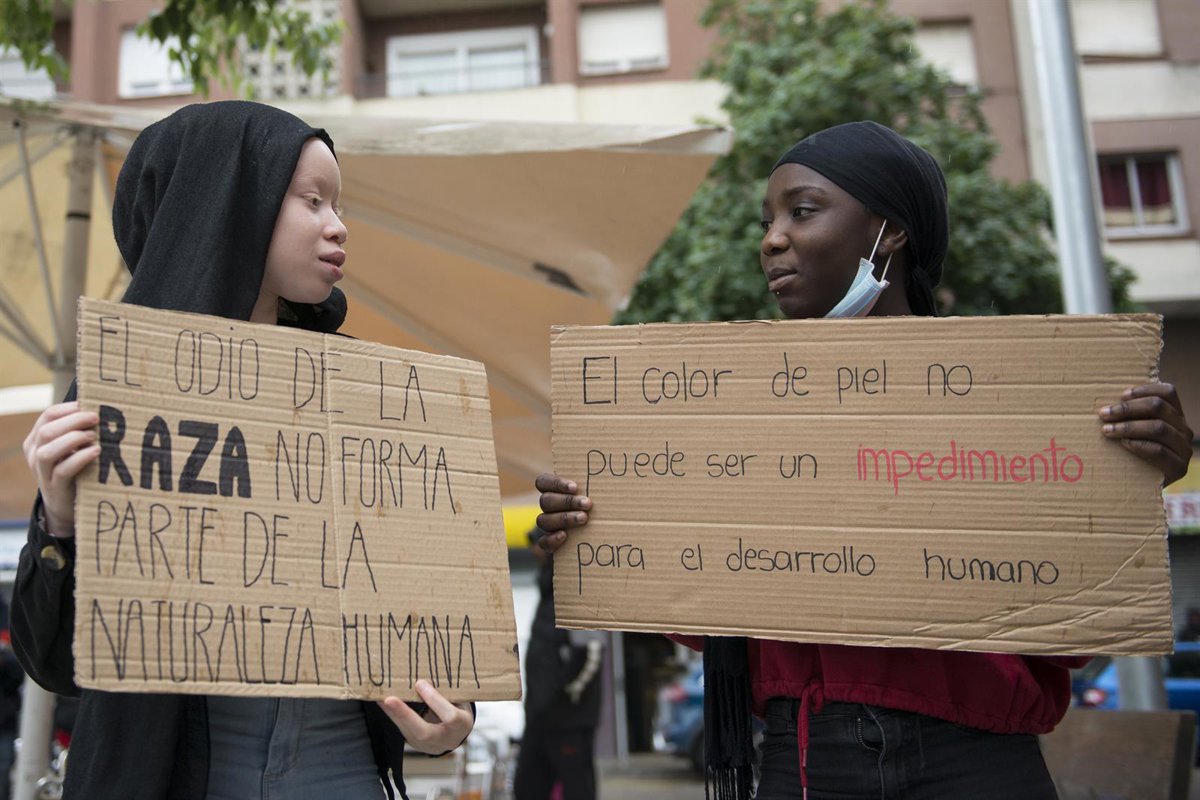 EL ODIO DE LA
RAZA NO FORMA
PARTE DE LA
NATURALEZA HUMANA
El color de piel no
puede ser un impedimiento
para el desarrollo humano